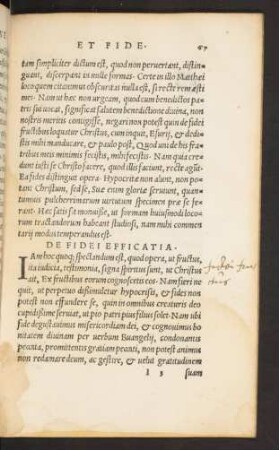 ET FIDE.
tam simpliciter dictum est, quod non peruertant, distin-
guant, discerpant in mille formas. Certe in illo Matthæi
loco quem citauimus obscuritas nulla est, si recte rem æsti
mes. Nam ut hæc non urgeam, quod cum benedictos pa-
tris sui uocat, significat salutem benedictione diuina, non
nostris meritis contigisse, negari non potest quin de fidei
fructibus loquatur Christus, cum inquit, Esurij, & dedi-
stis mihi manducare, & paulo post, Quod uni de his fra
tribus meis minimis fecistis, mihi fecistis. Nam qui a cre-
dunt ista se Christo facere, quod illis faciunt, recte agūt.
Ea fides distinguit opera. Hypocritæ non alunt, non po-
tant Christum, sed se, Suæ enim gloriæ seruiunt, quan-
tumuis pulcherrimarum uirtutum specimen præ se fe-
rant. Hæc satis sit monuisse, ut formam huiusmodi loco-
rum tractandorum habeant studiosi, nam mihi commen
tarij modus temperandus est.
DE FIDEI EFFICATIA.
IAm hoc quoq; spectandum est, quod opera, ut fructus,
ita indicia, testimonia, signa spiritus sunt, ut Christus
ait, Ex fructibus eorum cognoscetis eos. Nam fieri ne
quit, ut perpetuo dissimuletur hypocrisis, & fides non
potest non effundere se, quin in omnibus creaturis deo
cupidissime seruiat, ut pio patri pius filius solet. Nam ubi
fide degustauimus misericordiam dei, & cognouimus bo
nitatem diuinam per uerbum Euangelij, condonantis
peccata, promittentis gratiam peccati, non potest animus
non redamare deum, ac gestire, & uelut gratitudinem
l 3 suam